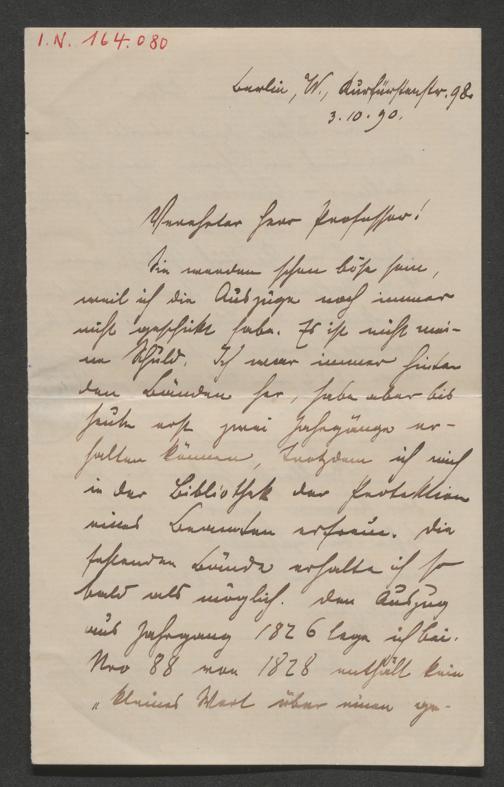 I. N. 164.080
Berlin, W., Kurfürstenstr. 98.
3.10.90.
Verehrter Herr Professor!
Sie werden schon böse sein,
weil ich die Auszüge noch immer
nicht geschikt habe. Es ist nicht mei-
ne Schuld. Ich war immer hinter
den Bänden her, habe aber bis
heute erst zwei Jahrgänge er-
halten können, trotzdem ich mich
in der Bibliothek der Protektion
eines Beamten erfreue. Die
fehlenden Bände erhalte ich so
bald als möglich. Den Auszug
aus Jahrgang 1826 lege ich bei.
Nro 88 von 1828 enthält kein
„kleines Wort über einen ge-